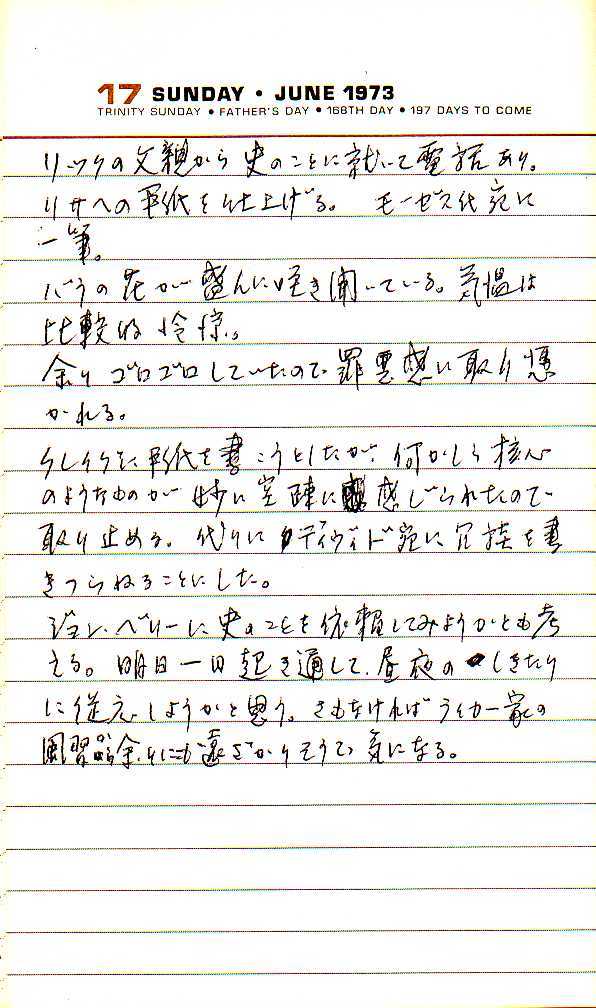 17 SUNDAY • JUNE 1973
TRINITY SUNDAY • FATHER'S DAY • 168TH DAY • 197 DAYS TO COME
リックの父親から史のことに就いて電話あり。
リサへの手紙を仕上げる。 モーゼス氏宛に
一筆。
バラの花が盛んに咲き開いている。気温は
比較的冷涼。
余りゴロゴロしていたので罪悪感に取り憑
かれる。
手紙を書こうとしたが、何かしら核心
のようなものが妙に空疎に感じられたので
取り止める。代りにデイヴィド宛に冗談を書
きつらねることにした。
ジョン・ベリーに史のことを依頼してみようかとも考
える。明日一日起き通して、昼夜のしきたり
に従応しようかと思う。さもなければライカー家の
風習から余りにも遠ざかりそうで気になる。